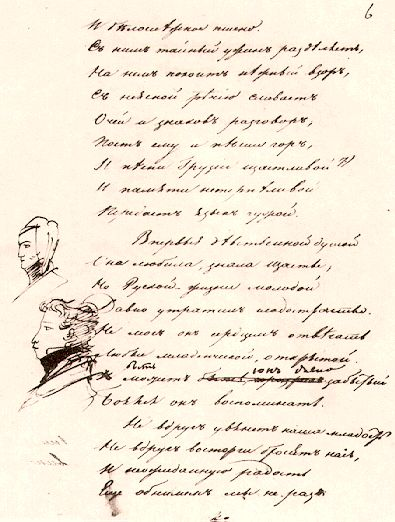 И бѣлоснѣжное пшено.
Съ нимъ тайный ужинъ раздѣляетъ,
На немъ покоитъ нѣжный взоръ,
Съ неясной рѣчію сливаетъ
Очей и знаковъ разговоръ,
Поетъ ему и пѣсни горъ,
И пѣсни Грузіи щастливой
И памяти нетерпѣливой
языкъ чужой.
Впервыя дѣвственной душой
Она любила, знала щастье,
Но Руской жизни молодой
Давно утратилъ сладострастье.
Не могъ онъ сердцемъ отвѣчать
Любви младенческой, открытой.
Быть сонъ любви
Можетъ забытой
Боялся онъ воспоминать.
Не вдругъ увянетъ наша младость
Не вдругъ восторги бросятъ насъ,
И неожиданную радость
Еще обнимемъ мы не разъ
6